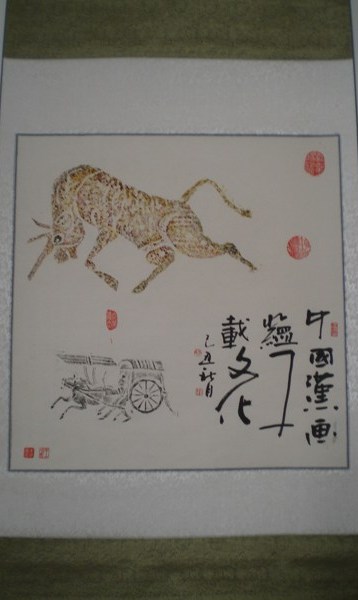 中國漢画
千
載文化
己丑秋月